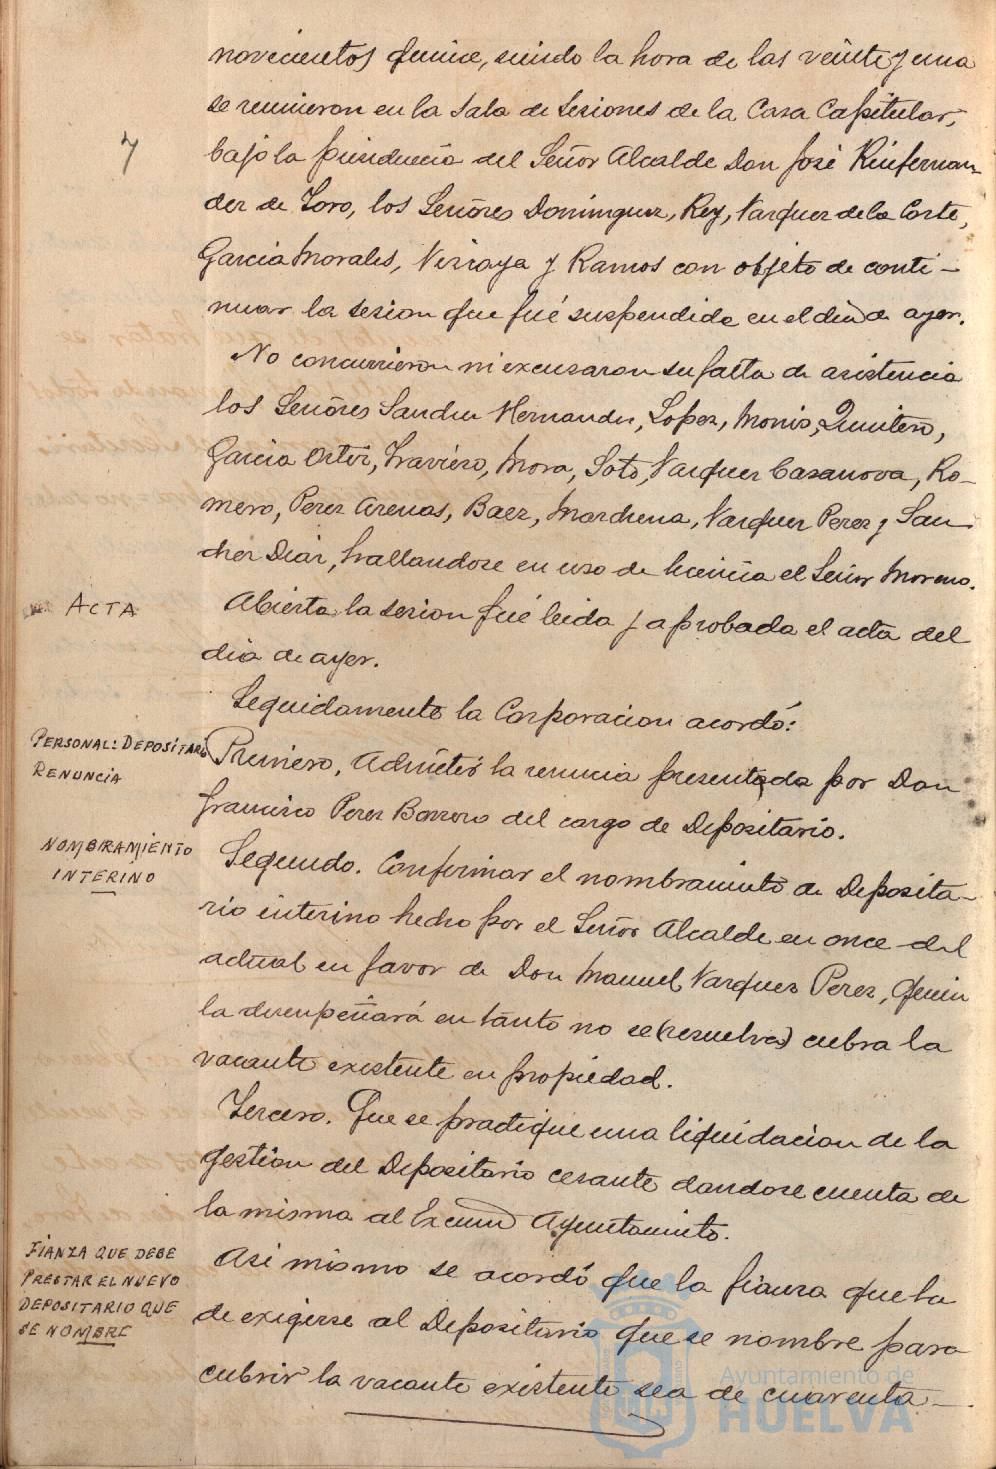 novecientos quince, siendo la hora de las veinte y una
se reunieron en la Sala de Sesiones de la Casa Capitular,
7
bajo la presidencia del Señor Alcalde Don José Kuifernan-
dez de Toro, los Señores Dominguez, Rey, Vazquez de la Corte,
Garcia Morales, Vizcaya y Ramos con objeto de conti-
nuar la sesion que fué suspendida en el dia de ayer.
No concurrieron ni excusaron su falta de asistencia
los Señores Sanchez Hernandez, Lopez, Monis, Quintero,
Garcia Ortiz, Travieso, Mora, Soto, Vazquez Casanova, Ro-
mero, Perez Arenas, Baez, Marchena, Vazquez Perez y San-
chez Diaz, hallandose en uso de licencia el Señor Moreno.
ACTA
Abierta la sesion fué leida y aprobada el acta del
dia de ayer.
Seguidamente la Corporacion acordó:
PERSONAL: DEPOSITARIO
RENUNCIA
Primero. Admitir la renuncia presentada por Don
Francisco Perez Borrero del cargo de Depositario.
NOMBRAMIENTO
INTERINO
Segundo. Confirmar el nombramiento de Deposita-
rio interino hecho por el Señor Alcalde en once del
actual en favor de Don Manuel Vazquez Perez, quien
la desempeñará en tanto no se (resuelva) cubra la
vacante existente en propiedad.
Tercero. Que se practique una liquidacion de la
gestion del Depositario cesante dandose cuenta de
la misma al Excmo Ayuntamiento.
FIANZA QUE DEBE
PRESTAR EL NUEVO
DEPOSITARIO QUE
SE NOMBRE
Asi mismo se acordó que la fianza que ha
de exigirse al Depositario que se nombre para
cubrir la vacante existente sea de cuarenta
Ayuntamiento de
HUELVA